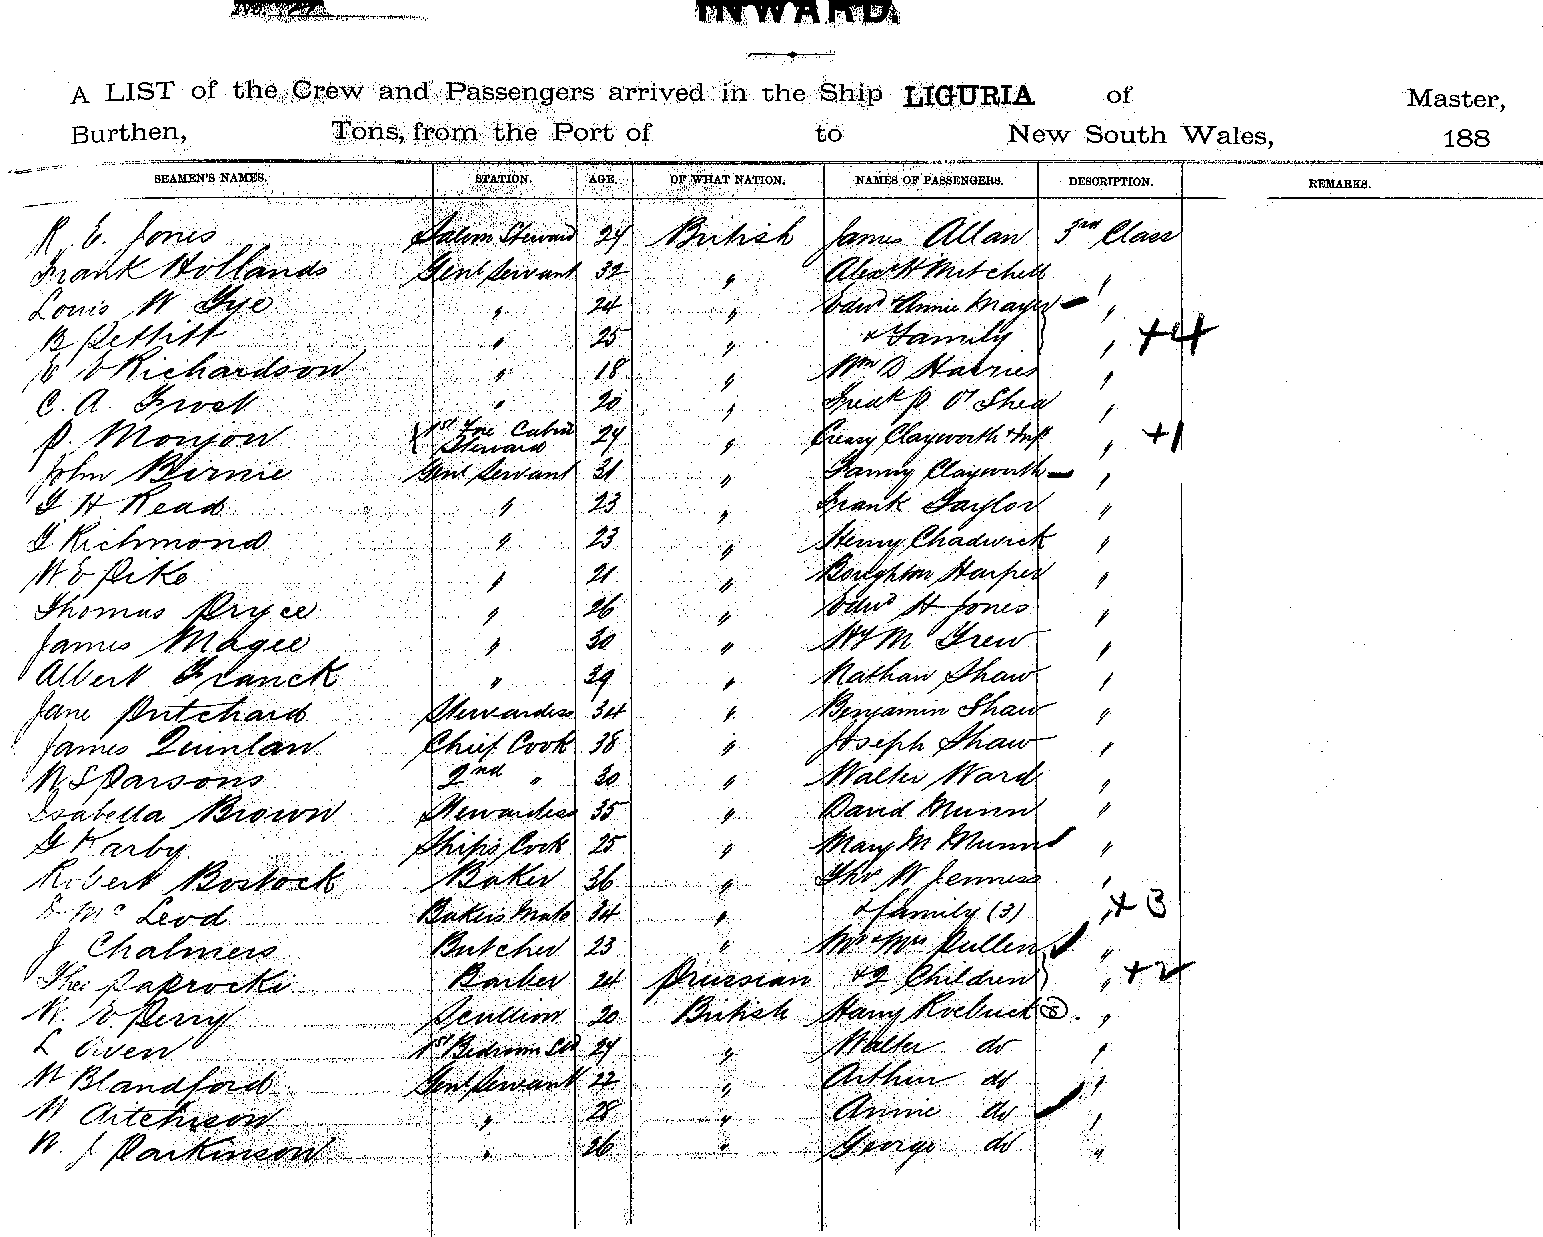 INWARD.
A LIST of the Crew and Passengers arrived in the Ship LIGURIA of Master,
Burthen, Tons, from the Port of to New South Wales, 188
SEAMEN'S NAMES. STATION. AGE. OF WHAT NATION. NAMES OF PASSENGERS. DESCRIPTION. REMARKS.
R. E. Jones Saloon Steward 24 British James Allan 3rd Class
Frank Hollands Genl Servant 32 " Alexr H Mitchell "
Louis W Gye " 24 " Edwd & Annie Mayer "
B Pettitt " 25 " & Family " +4
E E Richardson " 18 " Wm D Harries "
C. A. Frost " 20 " Fredk P. O'Shea "
P. Monjon 1st Fore Cabin Steward 24 " Creasy Clayworth & Inft " +1
John Birnie Genl Servant 31 " Fanny Clayworth "
G H Read " 23 " Frank Taylor "
G Richmond " 23 " Henry Chadwick "
W E Pike " 21 " Boughton Harper "
Thomas Pryce " 26 " Edwd H Jones "
James Magee " 30 " M Grew "
Albert Franck " 29 " Nathan Shaw "
Jane Pritchard Stewardess 34 " Benjamin Shaw "
James Quinlan Chief Cook 38 " Joseph Shaw "
W S Parsons 2nd " 30 " Walter Ward "
Isabella Brown Stewardess 35 " David Munn "
G Karby Ships Cook 25 " Mary M Munn "
Robert Bostock Baker 36 " Thos W Jenness "
D McLeod Bakers Mate 34 " & family (3) " +3
J Chalmers Butcher 23 " Mr & Mrs Pullen "
Theo Paprocki Barber 24 Prussian & 2 Children " +2
W. E Perry Scullion 20 British Harry Roebuck (8). "
L Owen 1st Bedroom Std 24 " Walter do "
W Blandford Genl Servant 22 " Arthur do "
W Aitchison " 28 " Annie do "
W. J Parkinson " 26 " George do "